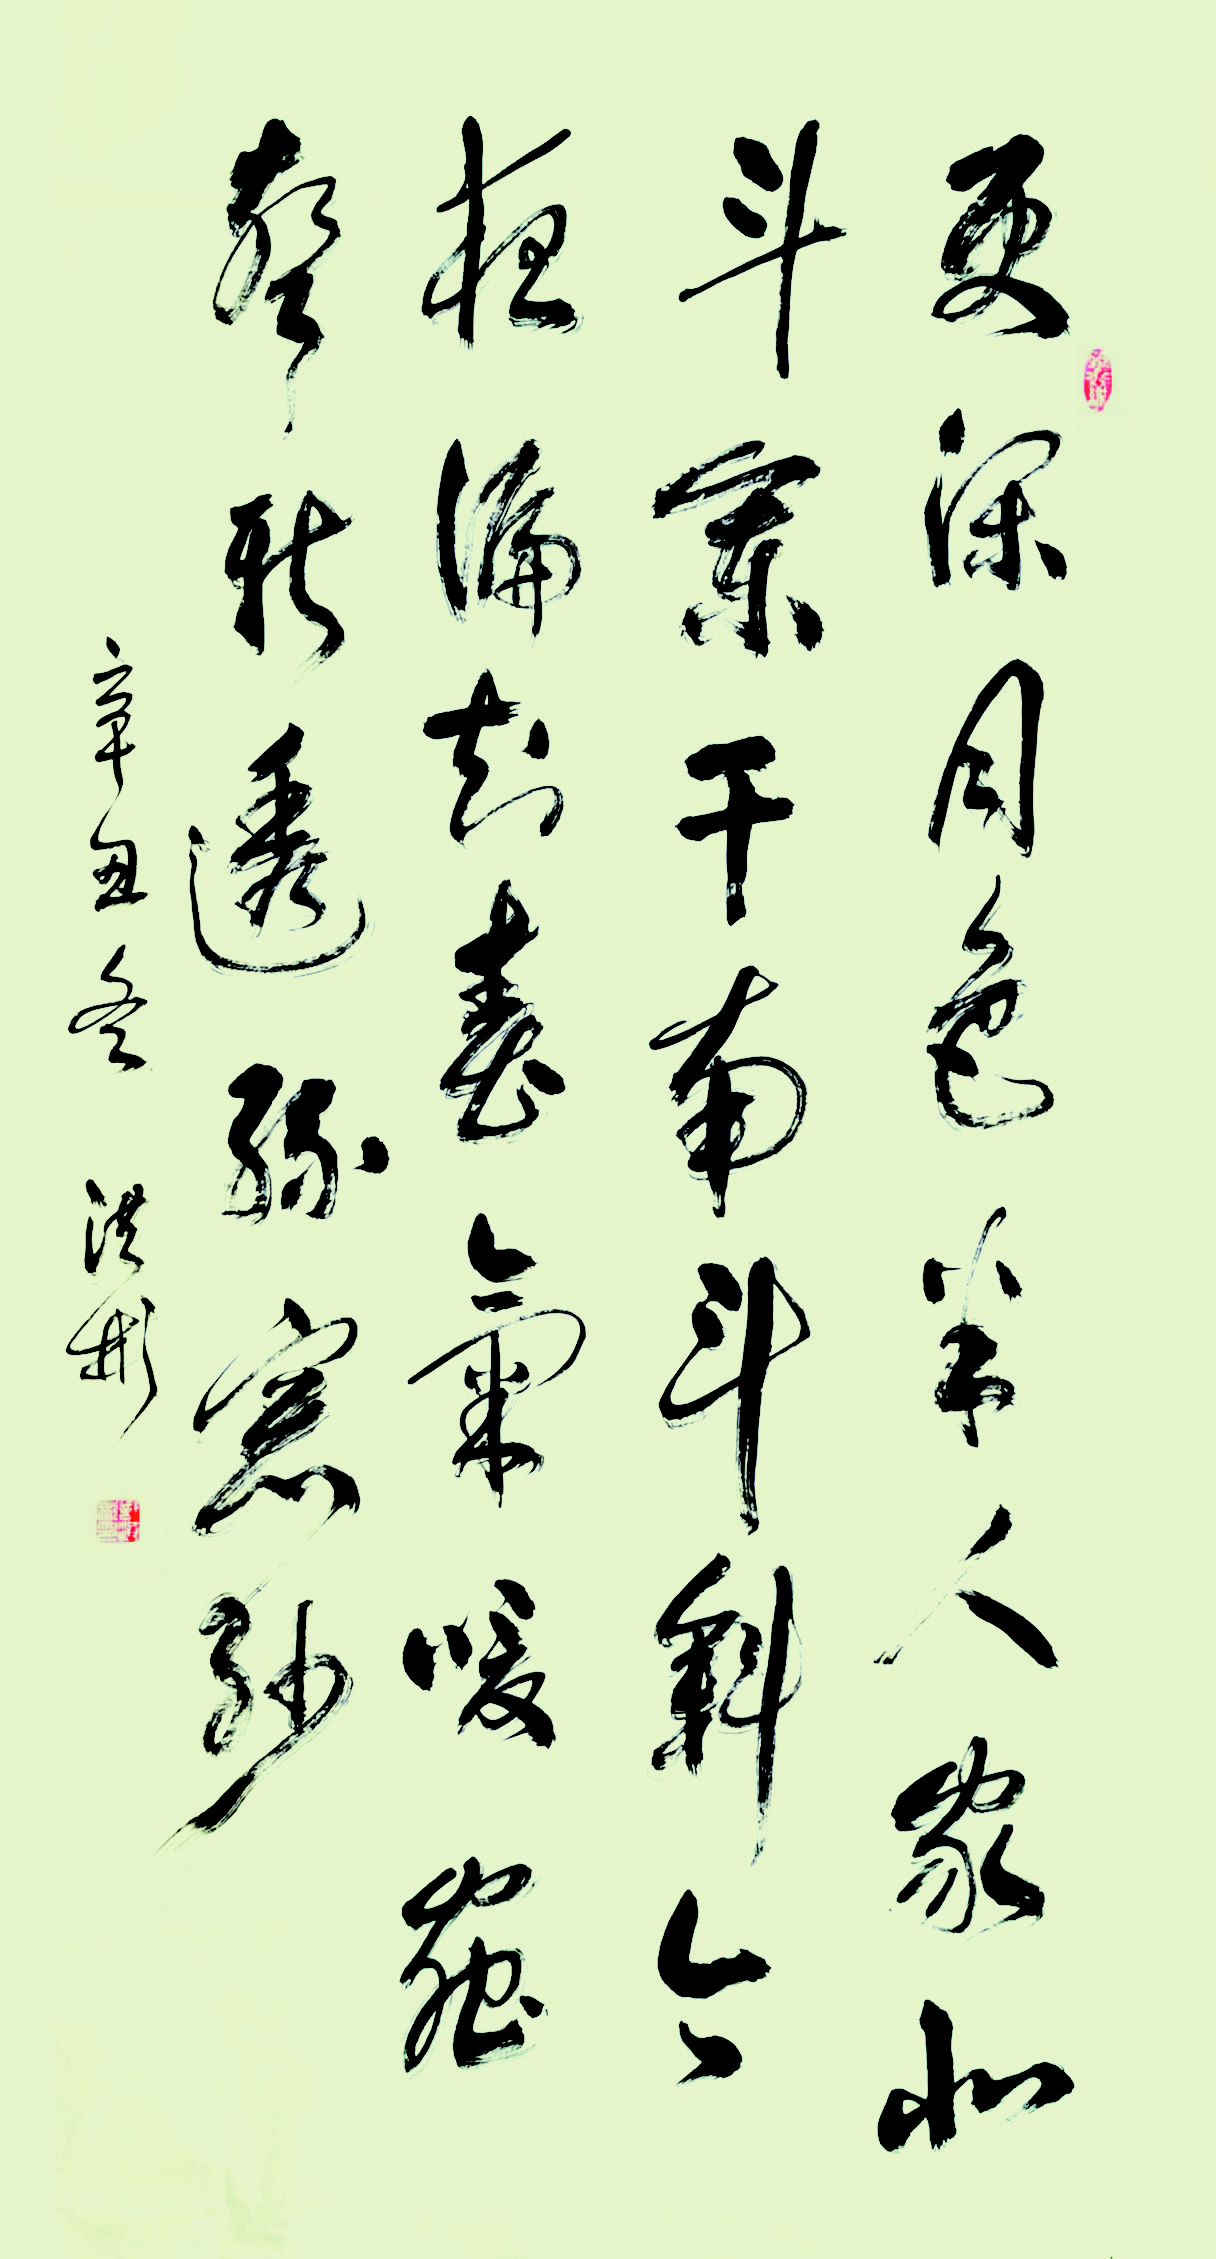 更深月色半人家北
斗闌干南斗斜今
夜偏知春氣暖蟲
聲新透綠窗紗
辛丑冬 洪彬